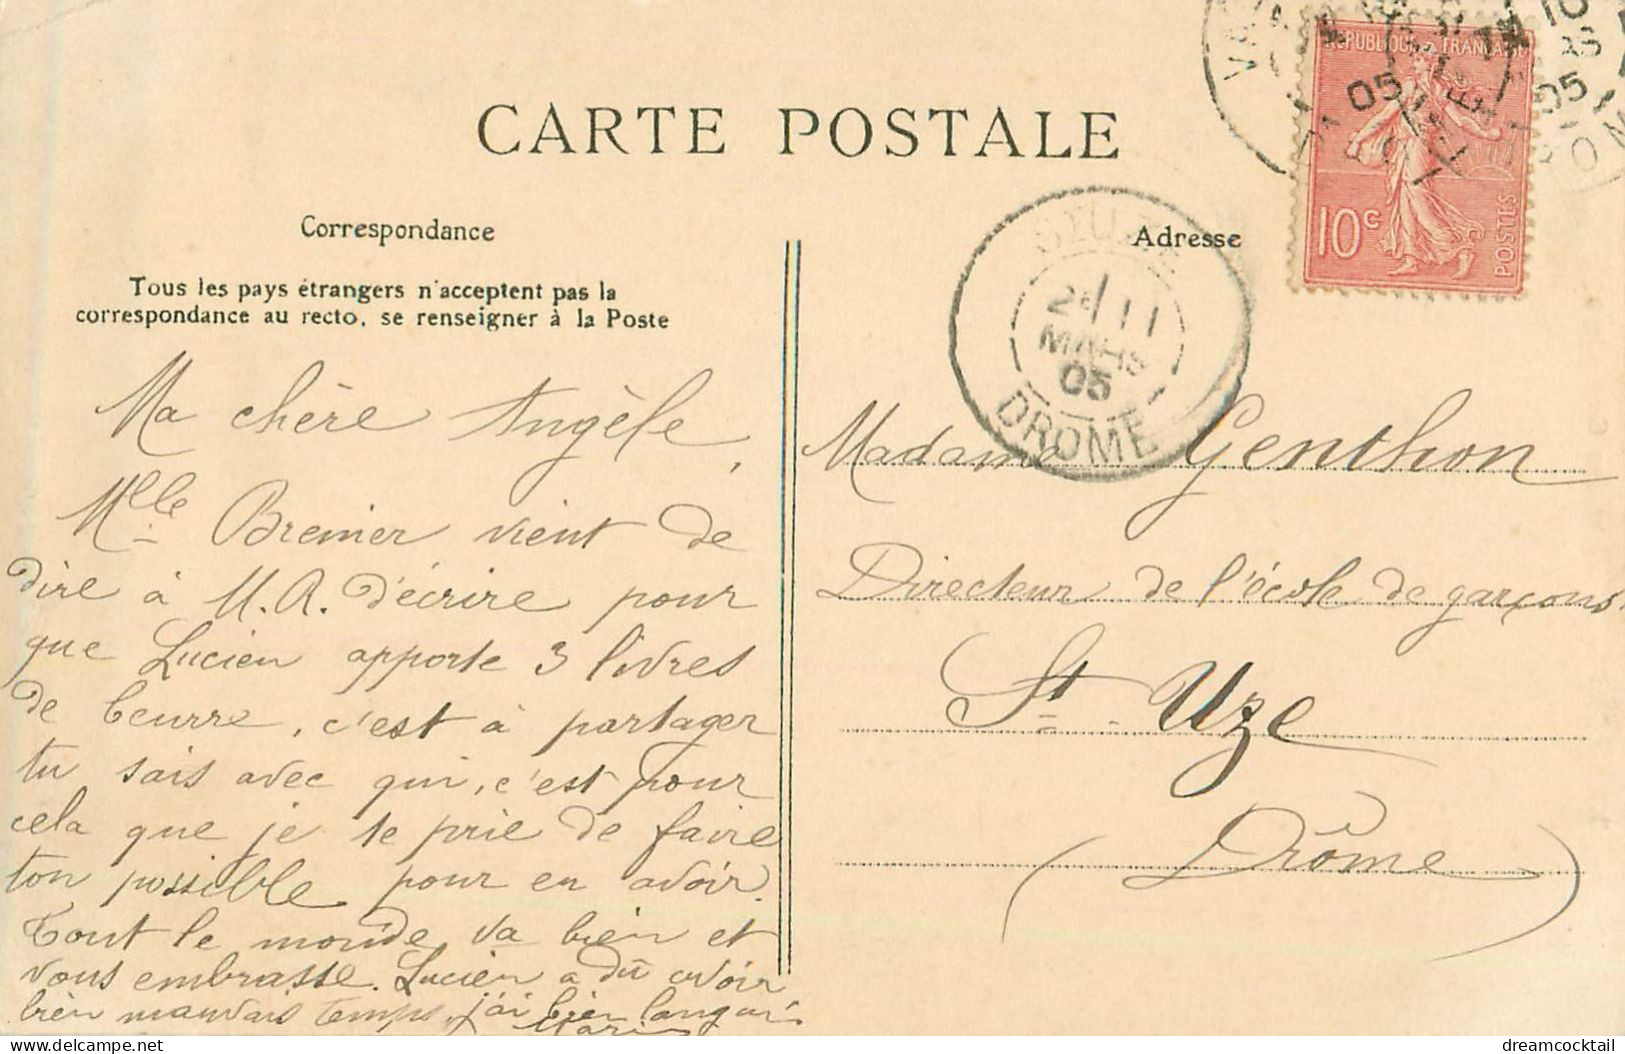 CARTE POSTALE
Correspondance
Tous les pays étrangers n'acceptent pas la
correspondance au recto, se renseigner à la Poste
Ma chère Angèle,
Mlle Bremier vient de
dire à M.A. d'écrire pour
que Lucien apporte 3 livres
de beurre, c'est à partager
tu sais avec qui, c'est pour
cela que je te prie de faire
ton possible pour en avoir.
Tout le monde va bien et
vous embrasse. Lucien a dû avoir
bien mauvais temps, j'ai bien langui
Adresse
Madame Genthon
Directeur de l'école de garçons
St Uze
(Drôme)
REPUBLIQUE FRANÇAISE
10c
POSTES
05
05
11
MARS
05
DROME
dreamcocktail
delcampe.net